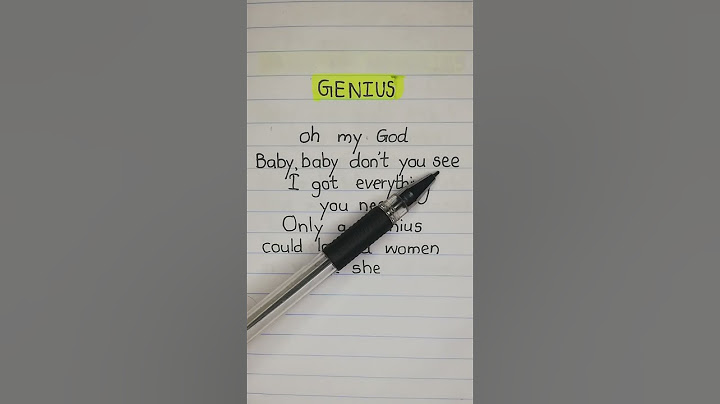 GENIUS
oh my God
Baby, baby don't you see
I got everything
you
Only
could women
she